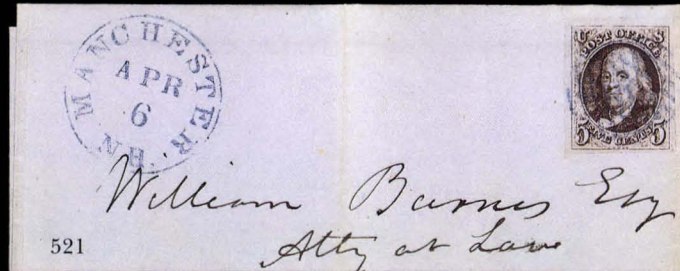 MANCHESTER NH
APR
6
U S
POST OFFICE
5 FIVE CENTS 5
William Barnes Esq
Atty at Law
521